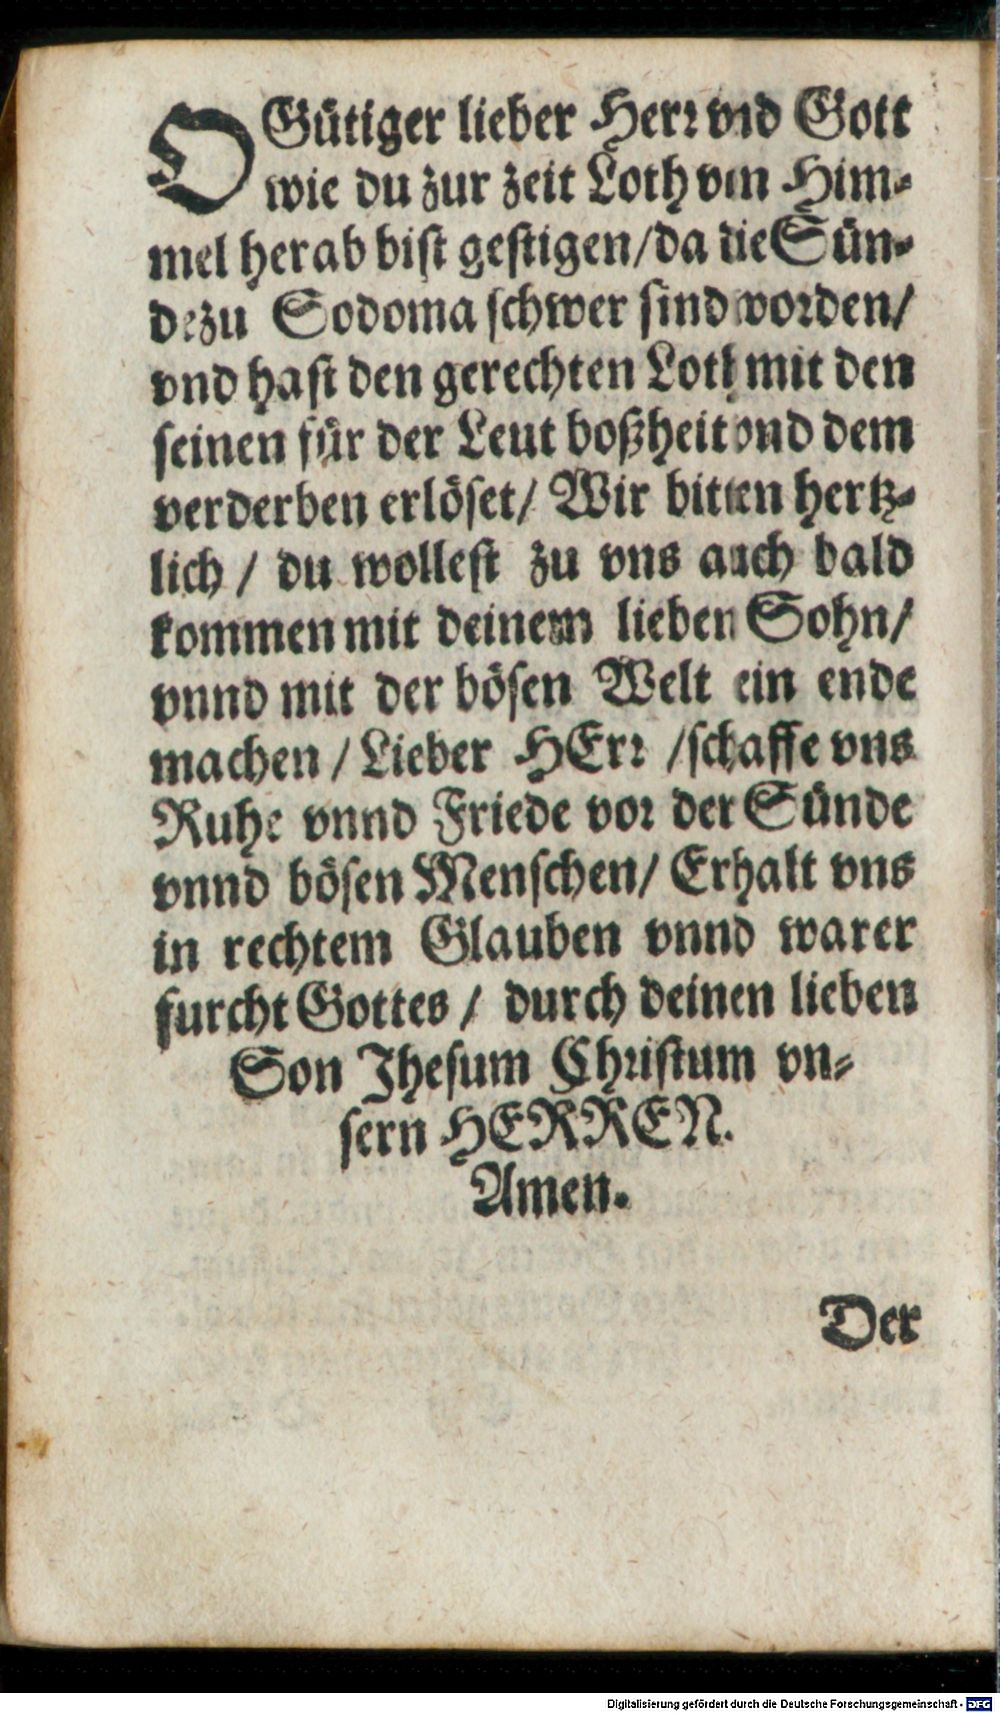 O Gütiger lieber Herr vnd Gott
wie du zur zeit Loth von Him⸗
mel herab bist gestigen/da die Sün⸗
de zu Sodoma schwer sind worden/
vnd hast den gerechten Loth mit den
seinen für der Leut boßheit vnd dem
verderben erlöset/ Wir bitten hertz⸗
lich / du wollest zu vns auch bald
kommen mit deinem lieben Sohn/
vnnd mit der bösen Welt ein ende
machen / Lieber HErr /schaffe vns
Ruhe vnnd Friede vor der Sünde
vnnd bösen Menschen/ Erhalt vns
in rechtem Glauben vnnd warer
furcht Gottes / durch deinen lieben
Son Jhesum Christum vn⸗
sern HERREN.
Amen.
Der
Digitalisierung gefördert durch die Deutsche Forschungsgemeinschaft - DFG